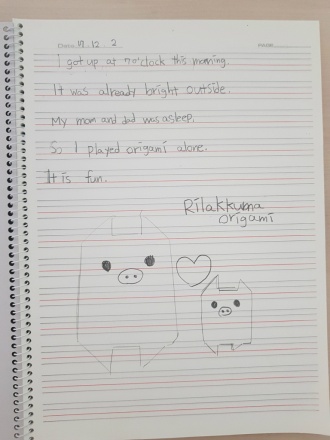 19. 12. 2
I got up at 7 o'clock this morning.
It was already bright outside.
My mom and dad was asleep.
So I played origami alone.
It is fun.
Rilakkuma
origami